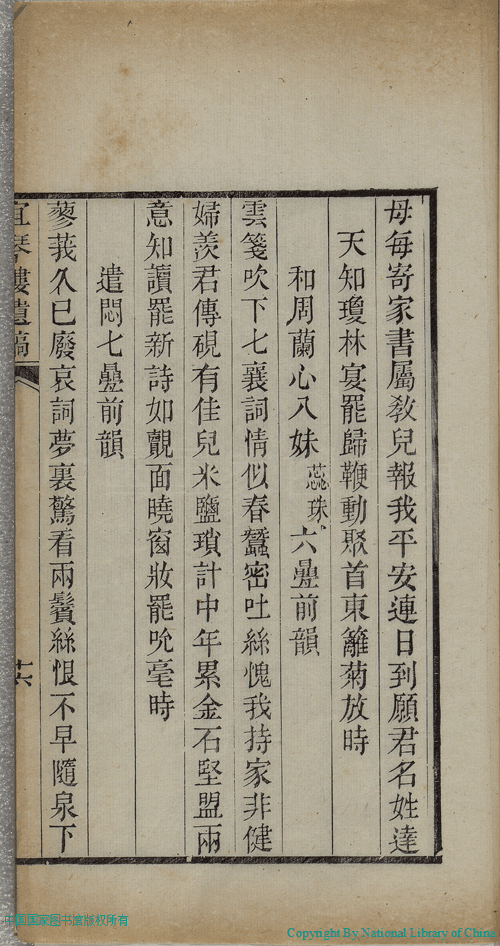 母每寄家書屬敎兒報我平安連日到願君名姓達
天知瓊林宴罷歸鞭動聚首東籬菊放時
和周蘭心八妹蕊珠六疊前韻
雲箋吹下七襄詞情似春蠶密吐絲愧我持家非健
婦羨君傳硯有佳兒米鹽瑣計中年累金石堅盟兩
意知讀罷新詩如覿面曉窗妝罷吮毫時
遣悶七疊前韻
蓼莪久已廢哀詞夢裏驚看兩鬢絲恨不早隨泉下
宜琴樓遺稿
十六
中国国家图书馆版权所有
Copyright By National Library of China